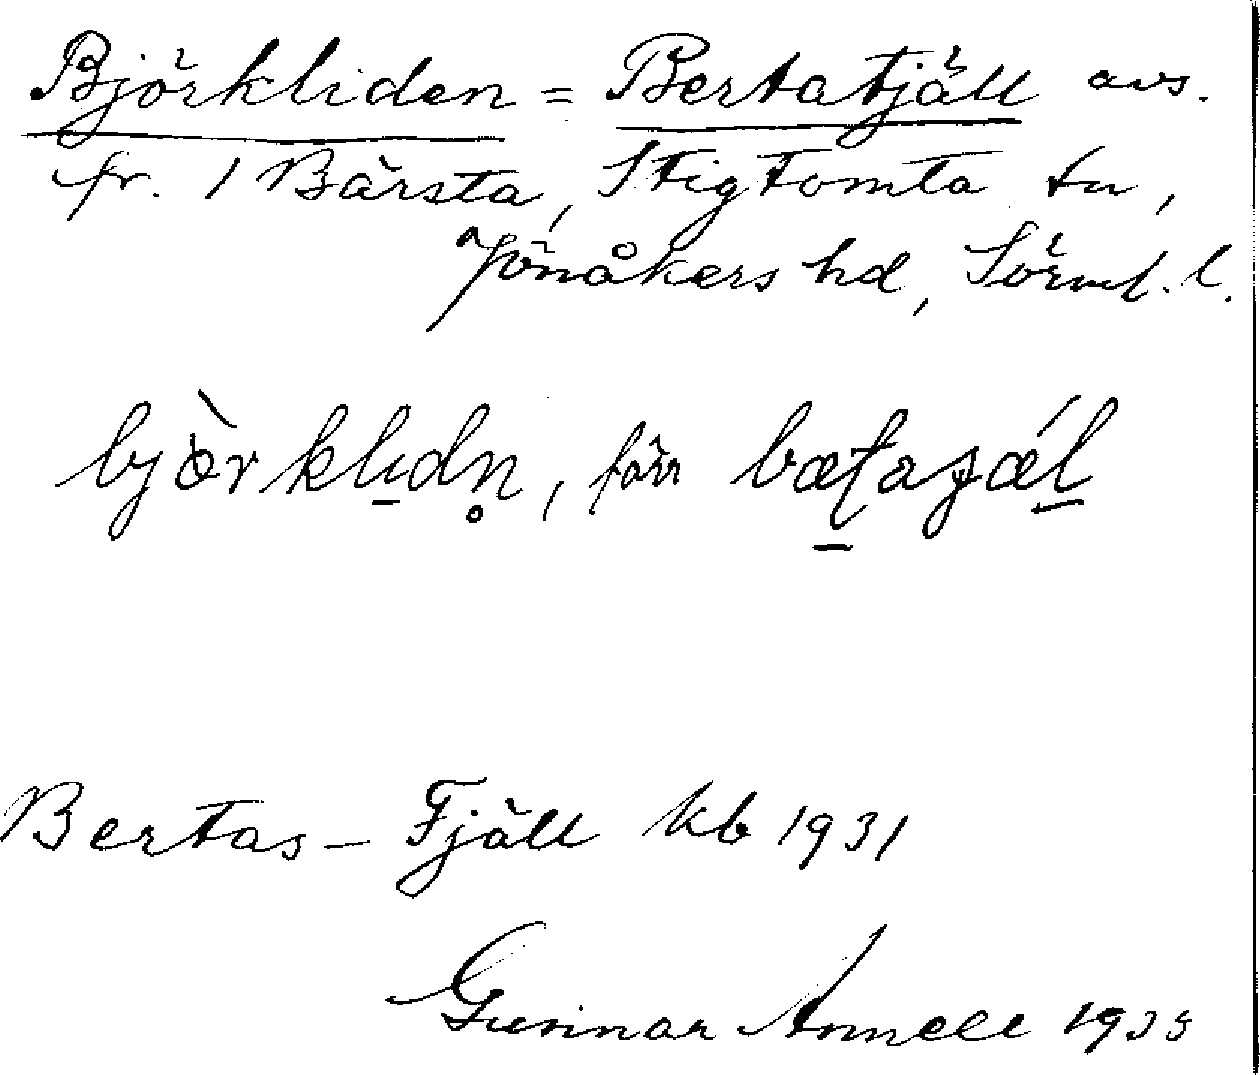 Björkliden = Bertatjäll avs.
fr. 1 Bärsta, Stigtomta sn,
Jönåkers hd, Sörml. l.
bjòrklidn̥, förr
Bertas-Tjäll kb 1931
Gunnar Annell 1933